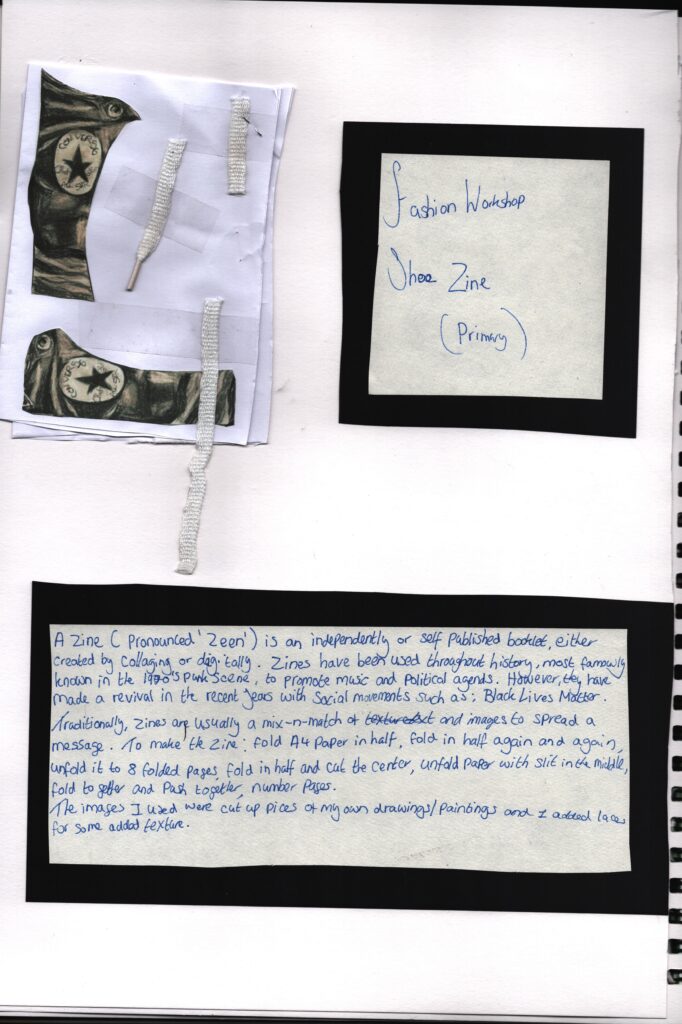 CONVERSE
Fashion Workshop
Shoe Zine
(Primary)
CONVERSE
A Zine ( pronounced 'Zeen') is an independently or self published booklet, either
created by collaging or digitally. Zines have been used throughout history, most famously
known in the 1970's Punk Scene, to promote music and Political agends. However, they have
made a revival in the recent years with social movements such as: Black Lives Matter.
Traditionally, Zines are usually a mix-n-match of and images to spread a
message. To make the Zine: fold A4 Paper in half, fold in half again and again,
unfold it to 8 folded pages, fold in half and cut the center, unfold paper with slit in the middle,
fold together and Push together, number Pages.
The images I used were cut up pices of my own drawings/paintings and I added laces
for some added texture.